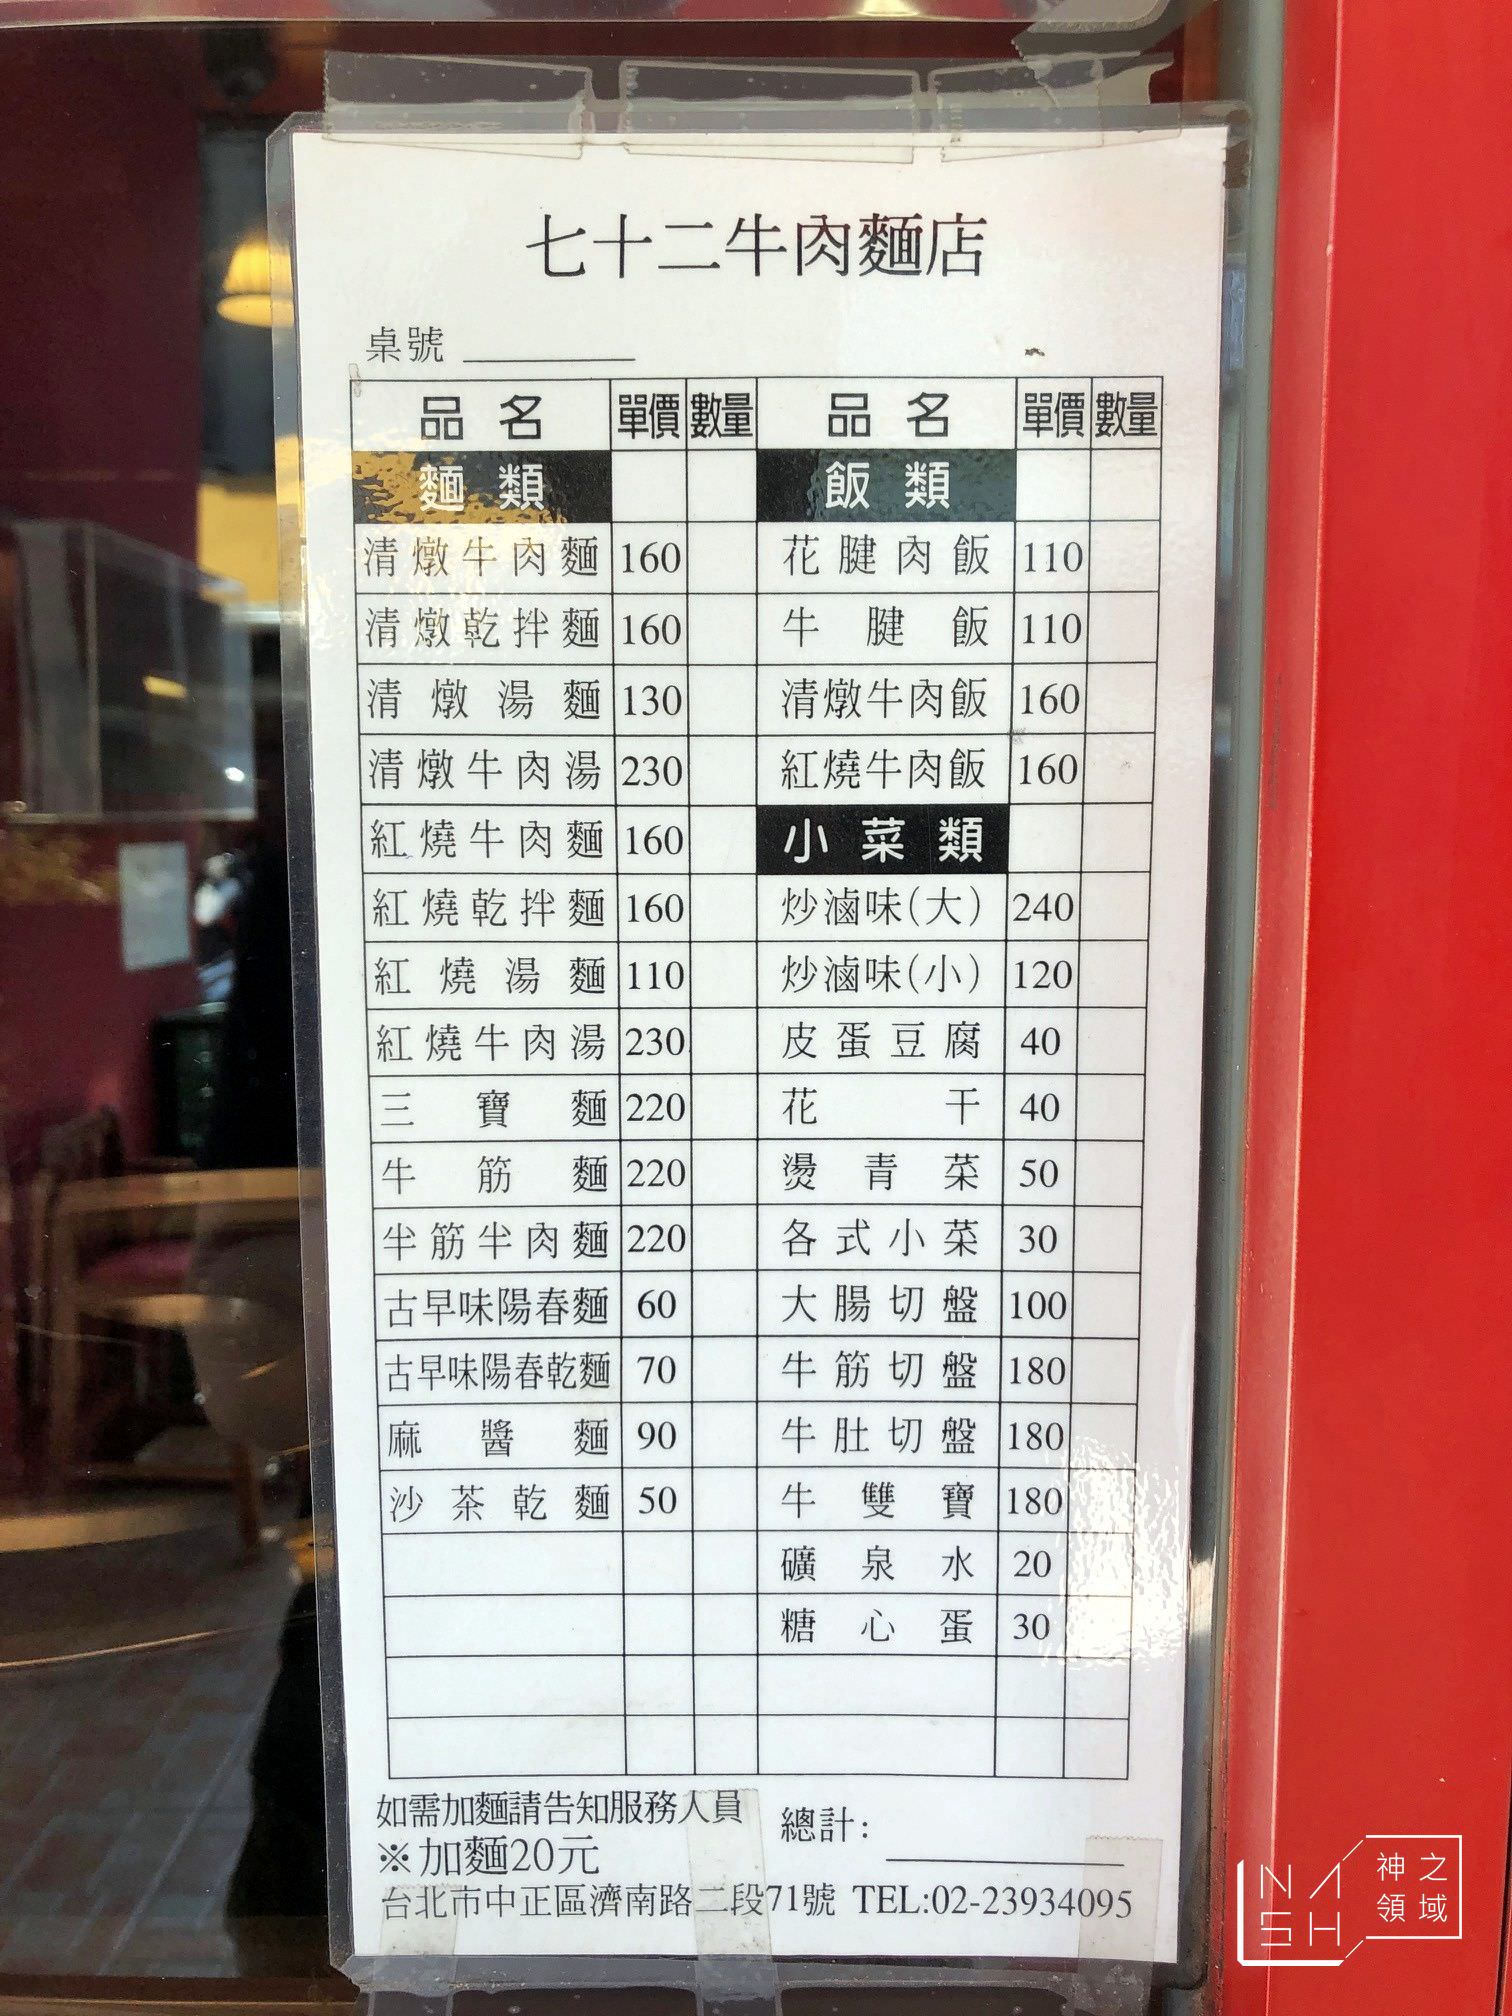 七十二牛肉麵店
桌號
品名 單價 數量 品名 單價 數量
麵類 飯類
清燉牛肉麵 160 花腱肉飯 110
清燉乾拌麵 160 牛腱飯 110
清燉湯麵 130 清燉牛肉飯 160
清燉牛肉湯 230 紅燒牛肉飯 160
紅燒牛肉麵 160 小菜類
紅燒乾拌麵 160 炒滷味(大) 240
紅燒湯麵 110 炒滷味(小) 120
紅燒牛肉湯 230 皮蛋豆腐 40
三寶麵 220 花干 40
牛筋麵 220 燙青菜 50
半筋半肉麵 220 各式小菜 30
古早味陽春麵 60 大腸切盤 100
古早味陽春乾麵 70 牛筋切盤 180
麻醬麵 90 牛肚切盤 180
沙茶乾麵 50 牛雙寶 180
礦泉水 20
糖心蛋 30
如需加麵請告知服務人員 總計:
※加麵20元
台北市中正區濟南路二段71號 TEL:02-23934095
NASH 神之領域